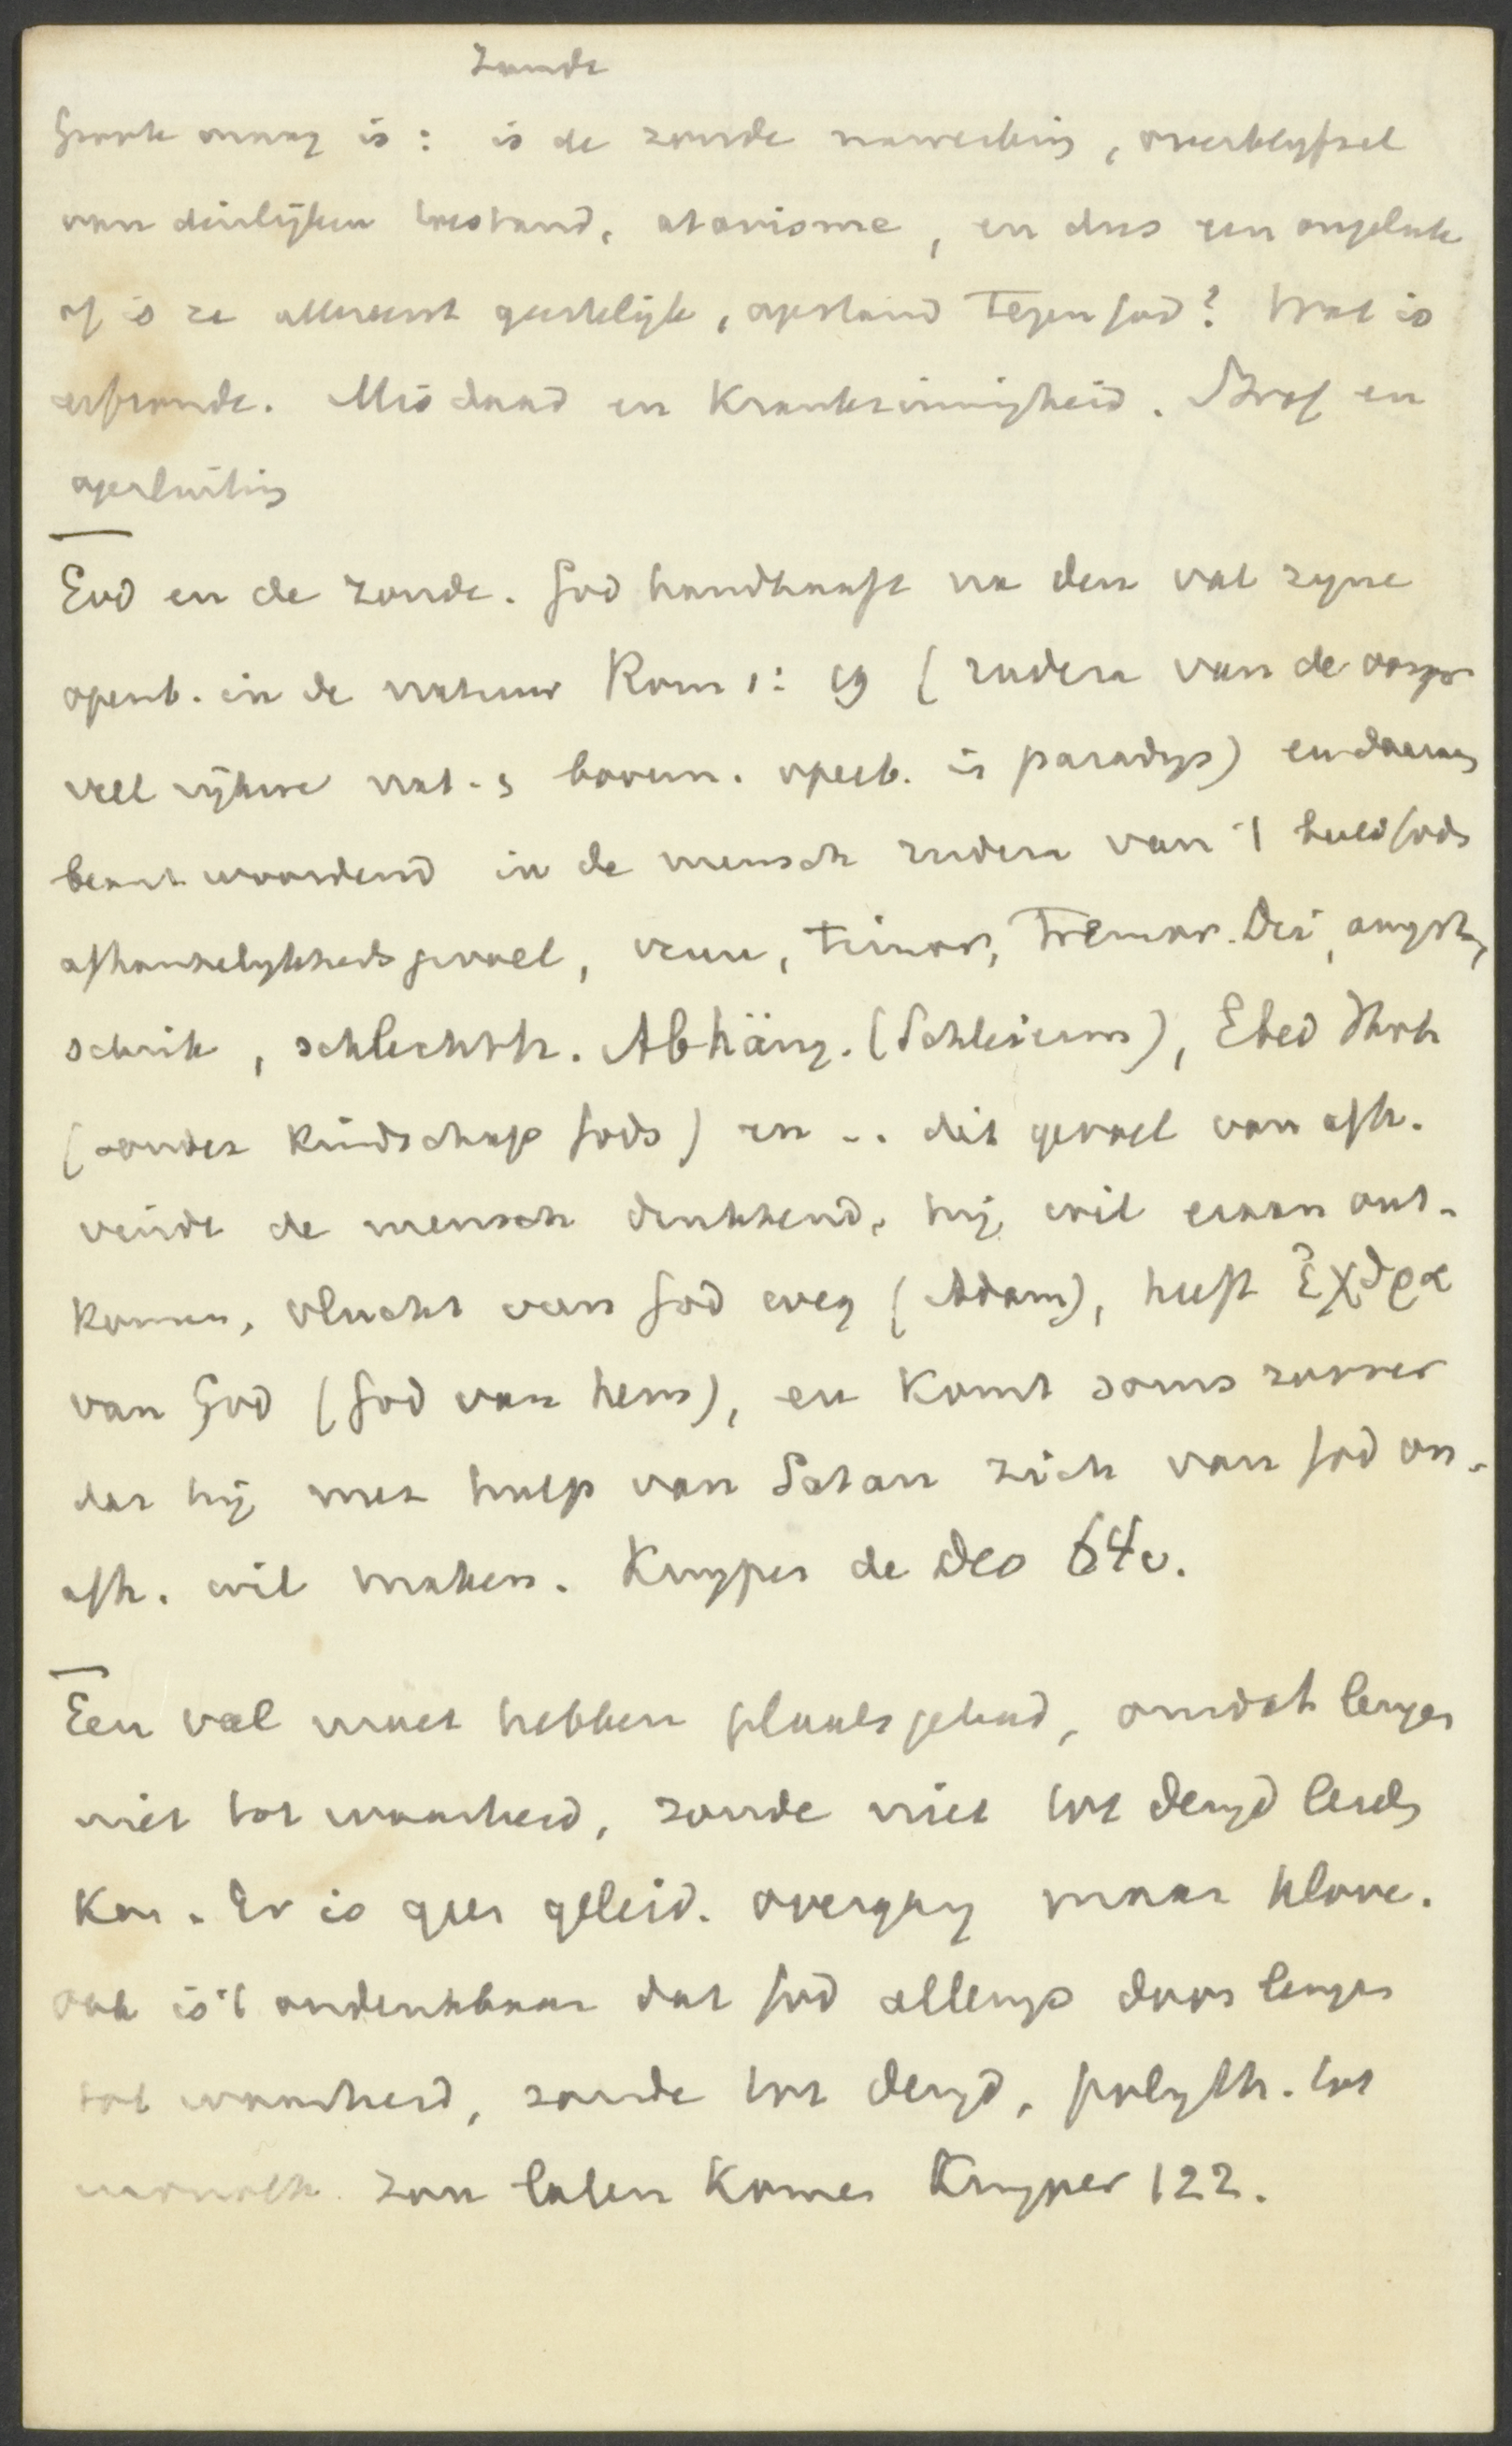 Zonde
Groote vraag is: is de zonde nawerking, overblyfsel
van dierlijken toestand, atavisme, en dus een ongeluk
of is ze allereerst geestelijk, opstand tegen God? Wat is
erfzonde. Misdaad en Krankzinnigheid. Straf en
opsluiting
God en de zonde. God handhaaft na den val zyne
openb. in de natuur Rom 1:19 (rudera van de oorspr
veel rijkere nat. & bovenn. openb. in paradys) en daaraan
beantwoordend in de mensch rudera van 't beeld Gods
afhankelykheidsgevoel, vrees, timor, Tremor Dei, angst,
schrik, schlechth. Abhäng. (Schleierm), Ebed Jhvh
(zonder Kindschap Gods) en .. dit gevoel van afh.
vindt de mensch drukkend, hij wil eraan ont-
komen, vlucht van God weg (Adam), heeft ἔχθρα
van God (God van hem), en komt soms zoover
dat hij met hulp van Satan zich van God on-
afh. wil maken. Kuyper de Deo 64v.
Een val moet hebben plaatsgehad, omdat leugen
niet tot waarheid, zonde niet tot deugd leiden
kan. Er is geen geleid. overgang maar klove.
Ook is 't ondenkbaar dat God allengs door leugen
tot waarheid, zonde tot deugd, polyth. tot
monoth. zou laten komen Kuyper 122.